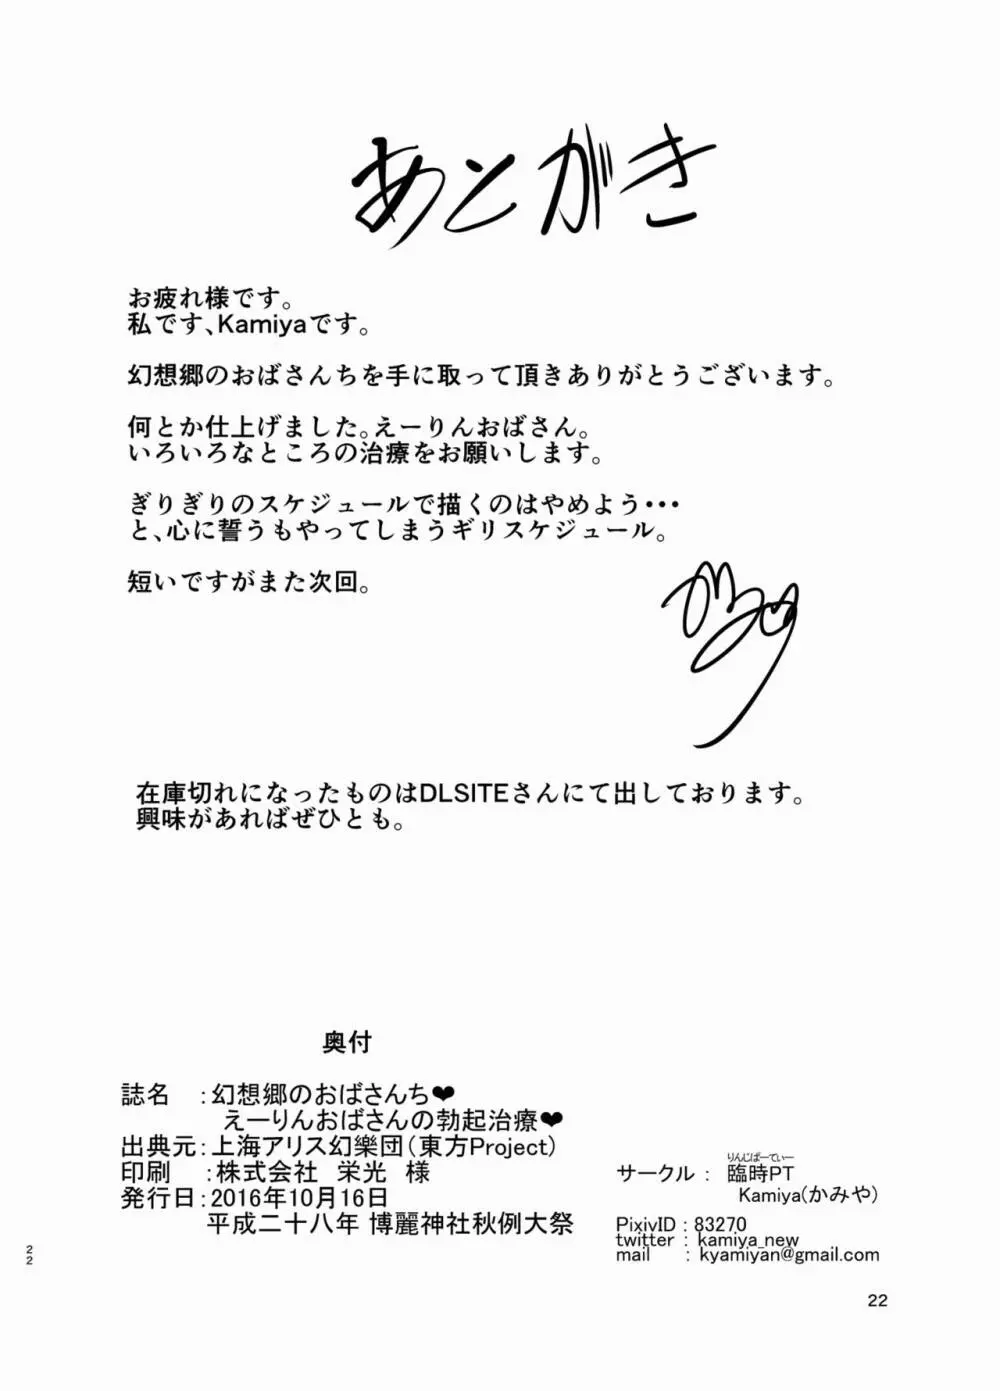 あとがき
お疲れ様です。
私です、Kamiyaです。
幻想郷のおばさんちを手に取って頂きありがとうございます。
何とか仕上げました。えーりんおばさん。
いろいろなところの治療をお願いします。
ぎりぎりのスケジュールで描くのはやめよう・・・
と、心に誓うもやってしまうギリスケジュール。
短いですがまた次回。
在庫切れになったものはDLSITEさんにて出しております。
興味があればぜひとも。
奥付
誌名　：幻想郷のおばさんち❤
えーりんおばさんの勃起治療❤
出典元：上海アリス幻樂団（東方Project）
印刷　：株式会社　栄光　様
発行日：2016年10月16日
平成二十八年 博麗神社秋例大祭
サークル： 臨時PT
りんじぱーてぃー
Kamiya(かみや)
PixivID : 83270
twitter : kamiya_new
mail : kyamiyan@gmail.com
22
22